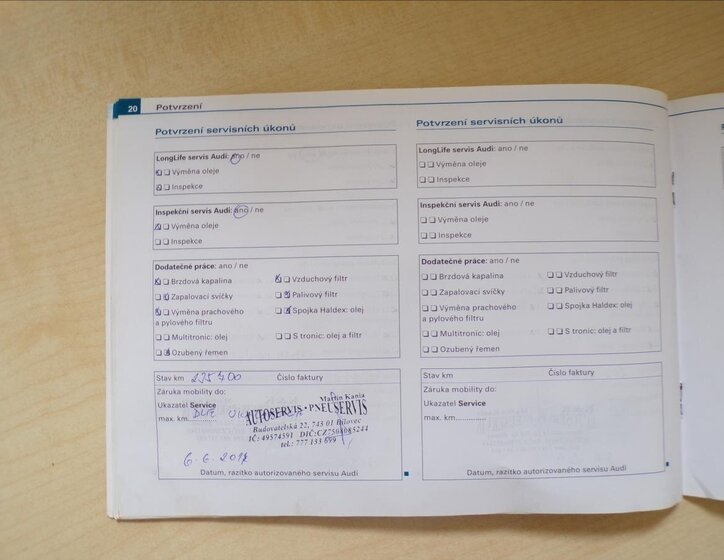 20 Potvrzení
Potvrzení servisních úkonů
LongLife servis Audi: ano / ne
Výměna oleje
Inspekce
Inspekční servis Audi: ano / ne
Výměna oleje
Inspekce
Dodatečné práce: ano / ne
Brzdová kapalina Vzduchový filtr
Zapalovací svíčky Palivový filtr
Výměna prachového Spojka Haldex: olej
a pylového filtru
Multitronic: olej S tronic: olej a filtr
Ozubený řemen
Stav km 235400 Číslo faktury
Záruka mobility do:
Ukazatel Service
max. km DLE
Martin Kania
AUTOSERVIS • PNEUSERVIS
Budovatelská 22, 743 01 Bílovec
IČ: 49574591 DIČ: CZ7508085244
tel.: 777 133 699
Datum, razítko autorizovaného servisu Audi
Potvrzení servisních úkonů
LongLife servis Audi: ano / ne
Výměna oleje
Inspekce
Inspekční servis Audi: ano / ne
Výměna oleje
Inspekce
Dodatečné práce: ano / ne
Brzdová kapalina Vzduchový filtr
Zapalovací svíčky Palivový filtr
Výměna prachového Spojka Haldex: olej
a pylového filtru
Multitronic: olej S tronic: olej a filtr
Ozubený řemen
Stav km Číslo faktury
Záruka mobility do:
Ukazatel Service
max. km
Datum, razítko autorizovaného servisu Audi